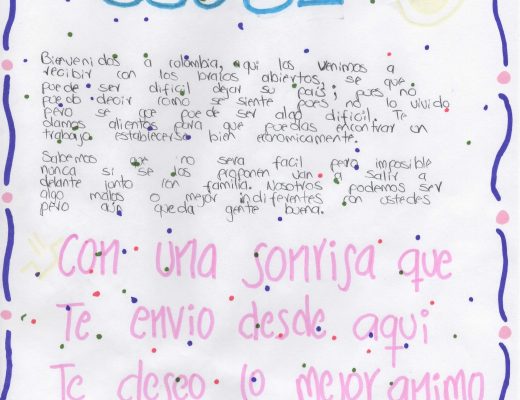 Bienvenidos a colombia, aqui los venimos a
recibir con los brazos abiertos, se que
puede ser dificil dejar su pais, pues no
puedo decir como se siente pues no lo vivido
pero se que puede ser algo dificil. Te
damos alientos para que puedas encontrar un
trabajo establecerse bien economicamente.
Sabemos que no sera facil pero imposible
nunca si se los proponen van a salir a
delante junto con familia. Nosotros podemos ser
algo malos o mejor indiferentes con ustedes
pero aun queda gente buena.
Con una sonrisa que
Te envio desde aqui
Te deseo lo mejor animo